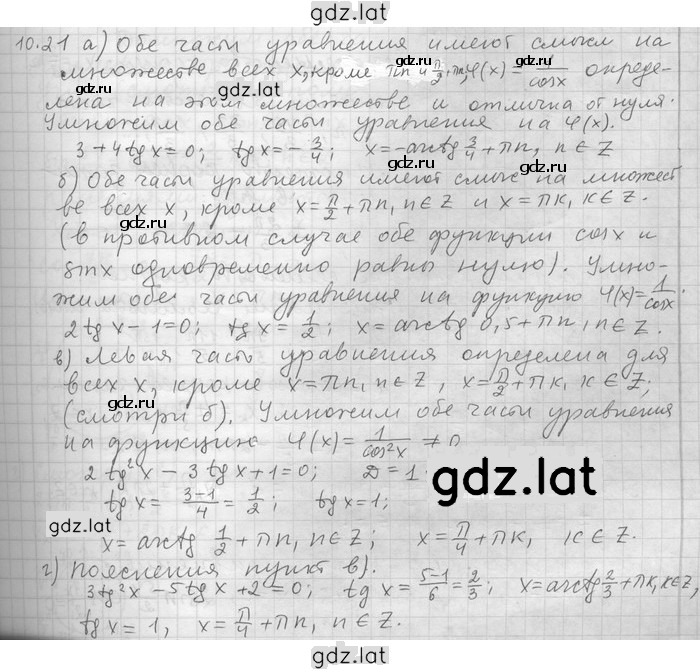 gdz.lat
10.21 а) Обе части уравнения имеют смысл на
множестве всех x, кроме πn и π/2+πn, φ(x) = 1/cosx опреде-
лена на этом множестве и отлична от нуля.
Умножим обе части уравнения на φ(x).
3+4tgx=0; tgx=-3/4; x=-arctg 3/4 + πn, n∈Z
б) Обе части уравнения имеют смысл на множест
ве всех x, кроме x=π/2+πn, n∈Z и x=πk, k∈Z.
(в противном случае обе функции cosx и
sinx одновременно равны нулю). Умно-
жим обе части уравнения на функцию φ(x)=1/cosx.
2tgx-1=0; tgx=1/2; x=arctg 0,5+πn, n∈Z.
в) Левая часть уравнения определена для
всех x, кроме x=πn, n∈Z, x=π/2+πk, k∈Z;
(смотри б). Умножим обе части уравнения
на функцию φ(x)=1/cos²x ≠ 0
2tg²x-3tgx+1=0; D=1.
tgx=(3-1)/4=1/2; tgx=1;
x=arctg 1/2+πn, n∈Z; x=π/4+πk, k∈Z.
г) пояснения пункт в).
3tg²x-5tgx+2=0; tgx=(5-1)/6=2/3; x=arctg 2/3+πk, k∈Z,
tgx=1, x=π/4+πn, n∈Z.
gdz.lat